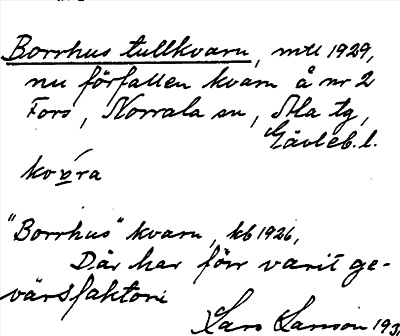 Borrhus tullkvarn, mtl 1929,
nu förfallen kvarn å nr 2
Fors, Norrala sn, Ala tg,
Gävleb. l.
"Borrhus" kvarn, kb 1926,
Där har förr varit ge-
värsfaktori
Lars 193